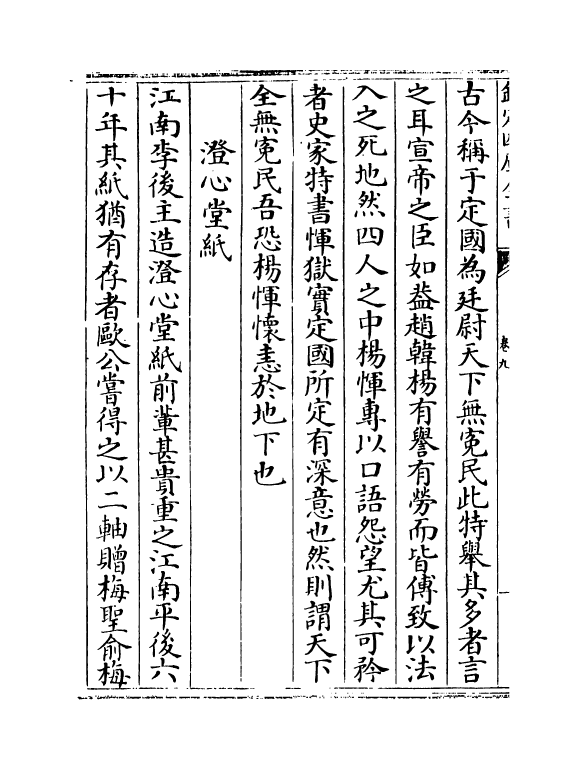 卷九
古今稱于定國為廷尉天下無寃民此特舉其多者言
之耳宣帝之臣如葢趙韓楊有譽有勞而皆傅致以法
入之死地然四人之中楊惲專以口語怨望尤其可矜
者史家特書惲獄實定國所定有深意也然則謂天下
全無寃民吾恐楊惲懷恚於地下也
澄心堂紙
江南李後主造澄心堂紙前輩甚貴重之江南平後六
十年其紙猶有存者歐公嘗得之以二軸贈梅聖俞梅